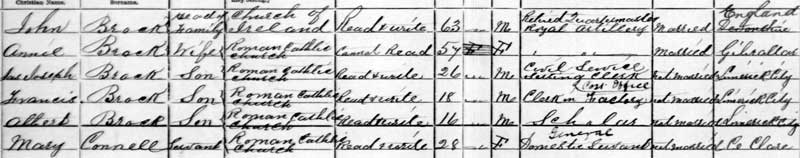 Christian Name. Surname.
John Brock Head of Family Church of Ireland Read & write 63 M Retired Quartermaster Royal Artillery Married England Devonshire
Annie Brock Wife Roman Catholic Church Cannot Read 57 F " " Married Gibraltar
Joseph Brock Son Roman Catholic Church Read & write 26 M Civil Service Clerk Post Office Not married Limerick City
Francis Brock Son Roman Catholic Church Read & write 18 M Clerk in Factory Not married Limerick City
Albert Brock Son Roman Catholic Church Read & write 16 M Scholar Not married Limerick City
Mary Connell Servant Roman Catholic Church Read & write 28 F General Domestic Servant Not married Co Clare